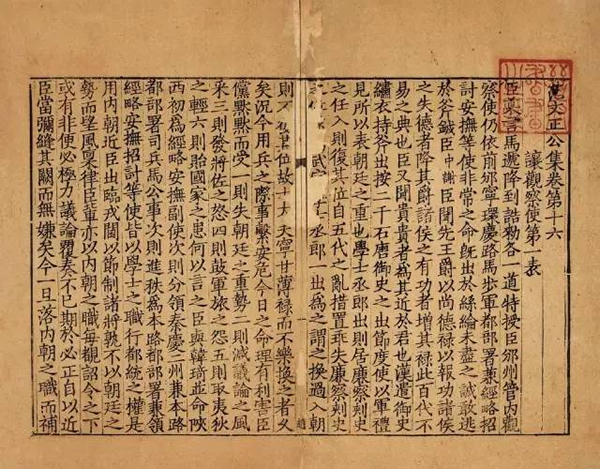 文正公集卷第十六
讓觀察使第一表
臣某言馬遞降到誥勑各一道特授臣邠州管內觀
察使仍依前邠寧環慶路馬步軍都部署兼經略招
討安撫等使非常之命旣出於絲綸未盡之誠敢逃
於斧鉞臣中謝臣聞先王爵以尚德禄以報功諸侯
之失德者降其爵諸侯之有功者增其禄此百代不
易之典也臣又聞貴貴者為其近於君也漢遣御史
繡衣持斧出按二千石唐御史之出節度使以軍禮
見所以表朝廷之重也學士丞郎出則居廉察刺史
之任入則復其位自五代之亂措置乖失廉察刺史
武丞郎一出為之謂之換過入朝
則位故寧甘薄禄而不樂換之者久
矣況今用兵之際事繫安危今日之命理有利害臣
儻黙黙而受一則失朝廷之重勢二則減議論之風
采三則發將佐之怒四則鼓軍旅之怨五則取夷狄
之輕六則貽國家之患何以言之臣與韓琦並命陝
西初為經略安撫副使次則分領秦慶二州兼本路
都部署司兵馬公事次則進秩為本路都部署兼領
經略安撫招討等使皆以學士之職行都統之權是
用內朝近臣出臨戎閫以節制諸將孰不以朝廷之
勢而望風稟律臣等亦以內朝之職每觀詔令之下
或有非便必極力議論覆奏不已期於必正自以近
臣當彌縫其闕而無嫌矣今一旦落內朝之職而補